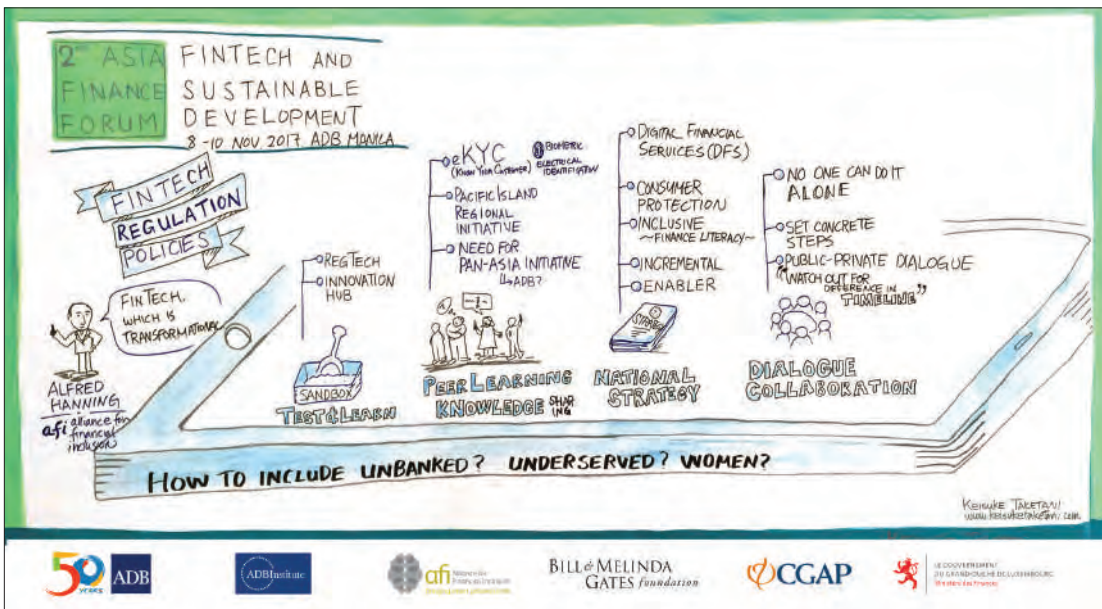 2ND ASIA
FINANCE
FORUM
FINTECH AND
SUSTAINABLE
DEVELOPMENT
8-10 NOV. 2017 ADB MANILA
FINTECH
REGULATION
POLICIES
FINTECH,
WHICH IS
TRANSFORMATIONAL
ALFRED
HANNING
afi alliance for
financial
inclusion
REGTECH
INNOVATION
HUB
SANDBOX
TEST & LEARN
eKYC
(KNOW YOUR CUSTOMER)
BIOMETRIC
ELECTRICAL
IDENTIFICATION
PACIFIC ISLAND
REGIONAL
INITIATIVE
NEED FOR
PAN-ASIA INITIATIVE
↳ADB?
PEER LEARNING
KNOWLEDGE SHAR
ING
DIGITAL FINANCIAL
SERVICES (DFS)
CONSUMER
PROTECTION
INCLUSIVE
~FINANCE LITERACY~
INCREMENTAL
ENABLER
NATIONAL
STRATEGY
NO ONE CAN DO IT
ALONE
SET CONCRETE
STEPS
PUBLIC-PRIVATE DIALOGUE
"WATCH OUT FOR
DIFFERENCE IN
TIMELINE"
DIALOGUE
COLLABORATION
HOW TO INCLUDE UNBANKED? UNDERSERVED? WOMEN?
KEISUKE TAKETANI
www.keisuketaketani.com
50
YEARS
ADB
ADBInstitute
afi
BILL & MELINDA
GATES foundation
CGAP
LE GOUVERNEMENT
DU GRAND-DUCHÉ DE LUXEMBOURG
Ministère des Finances